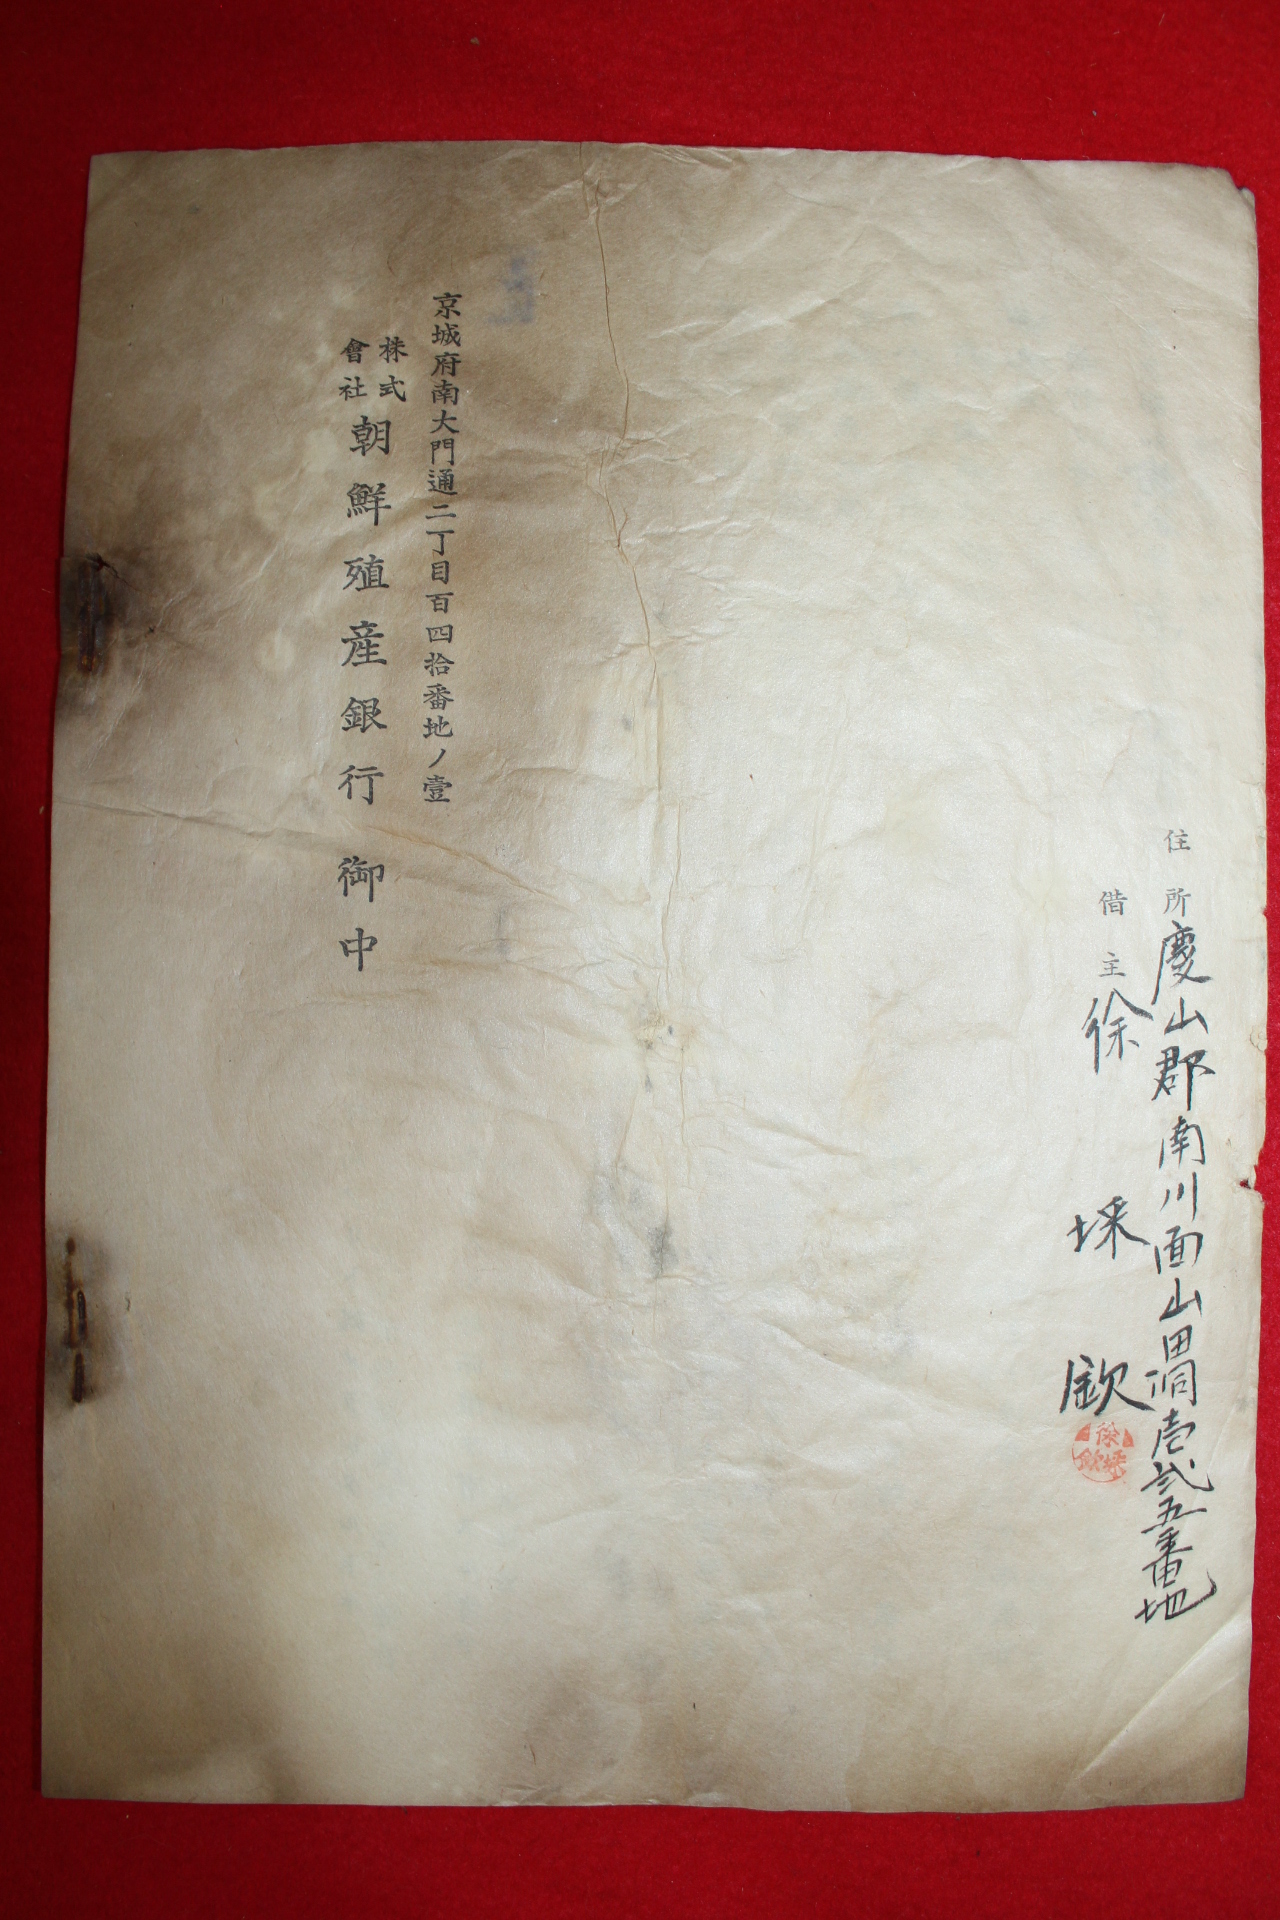 住所 慶山郡南川面山田洞壱弐五番地
借主 徐埰欽
徐埰欽
京城府南大門通二丁目百四拾番地ノ壹
株式會社朝鮮殖産銀行 御中